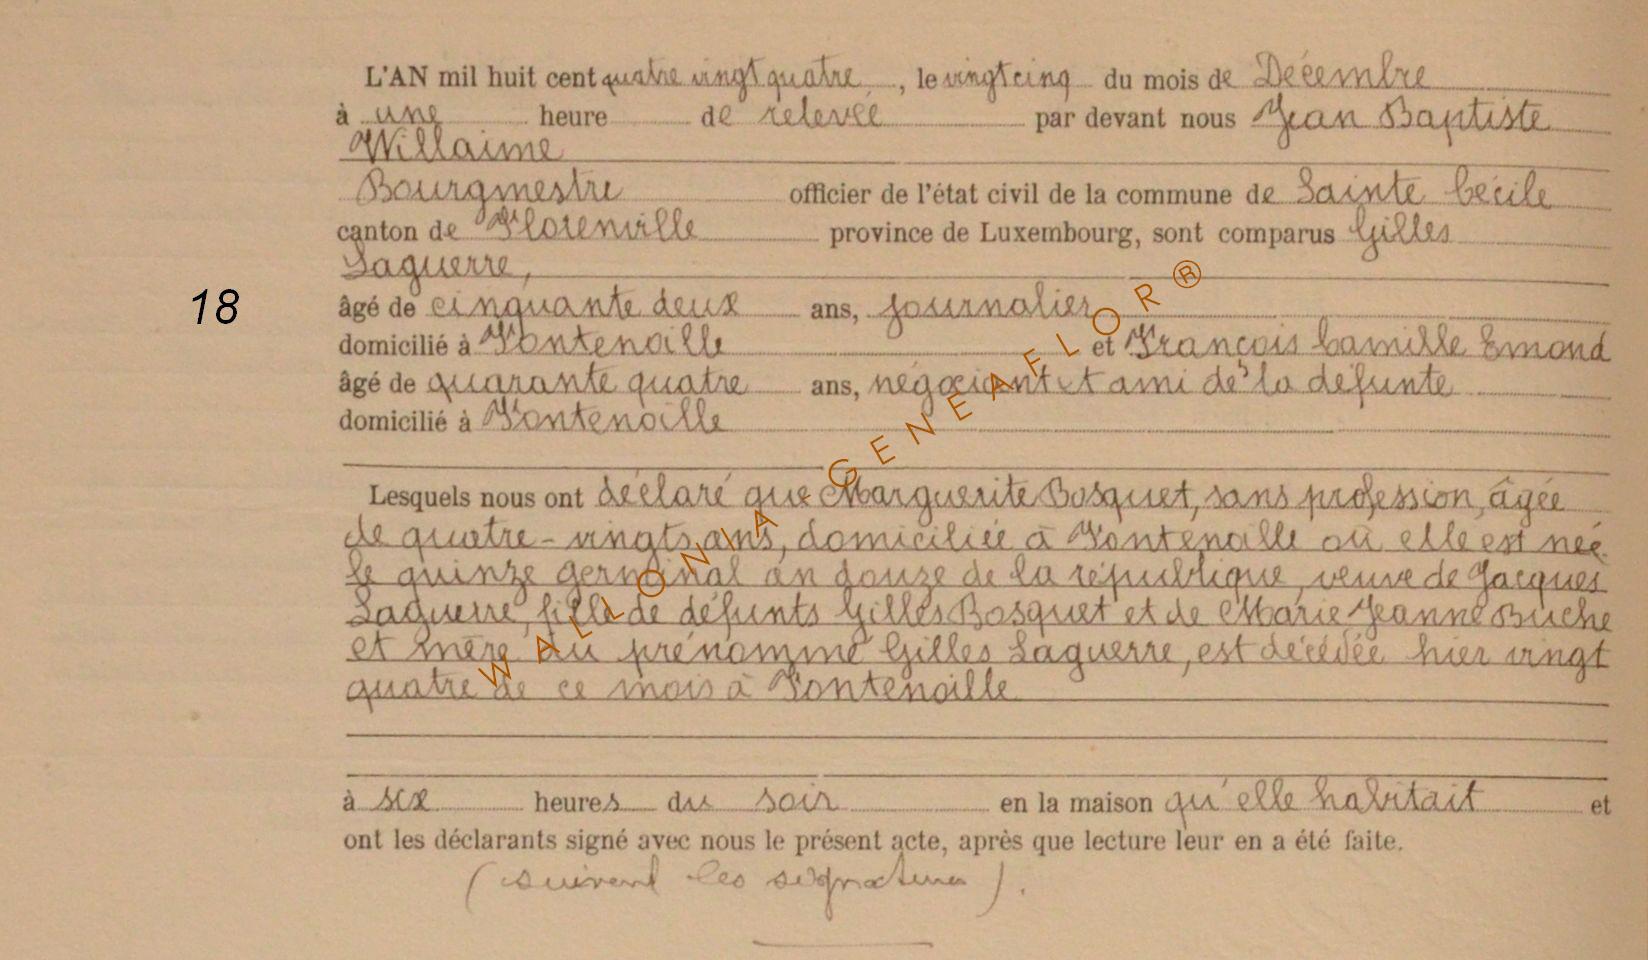 L'AN mil huit cent quatre vingt quatre, le vingt cinq du mois de Décembre
à une heure de relevée par devant nous Jean Baptiste
Willaime
Bourgmestre officier de l'état civil de la commune de Sainte Cécile
canton de Florenville province de Luxembourg, sont comparus Gilles
Laguerre,
18
âgé de cinquante deux ans, journalier
domicilié à Fontenoille et François Camille Emond
âgé de quarante quatre ans, négociant et ami de la défunte
domicilié à Fontenoille
Lesquels nous ont déclaré que Marguerite Bosquet, sans profession, âgée
de quatre-vingts ans, domiciliée à Fontenoille où elle est née
le quinze germinal an douze de la république, veuve de Jacques
Laguerre, fille de défunts Gilles Bosquet et de Marie Jeanne Buche
et mère du prénommé Gilles Laguerre, est décédée hier vingt
quatre de ce mois à Fontenoille
à six heures du soir en la maison qu'elle habitait et
ont les déclarants signé avec nous le présent acte, après que lecture leur en a été faite.
(suivent les signatures).
WALLONIA - GENEAFLOR®